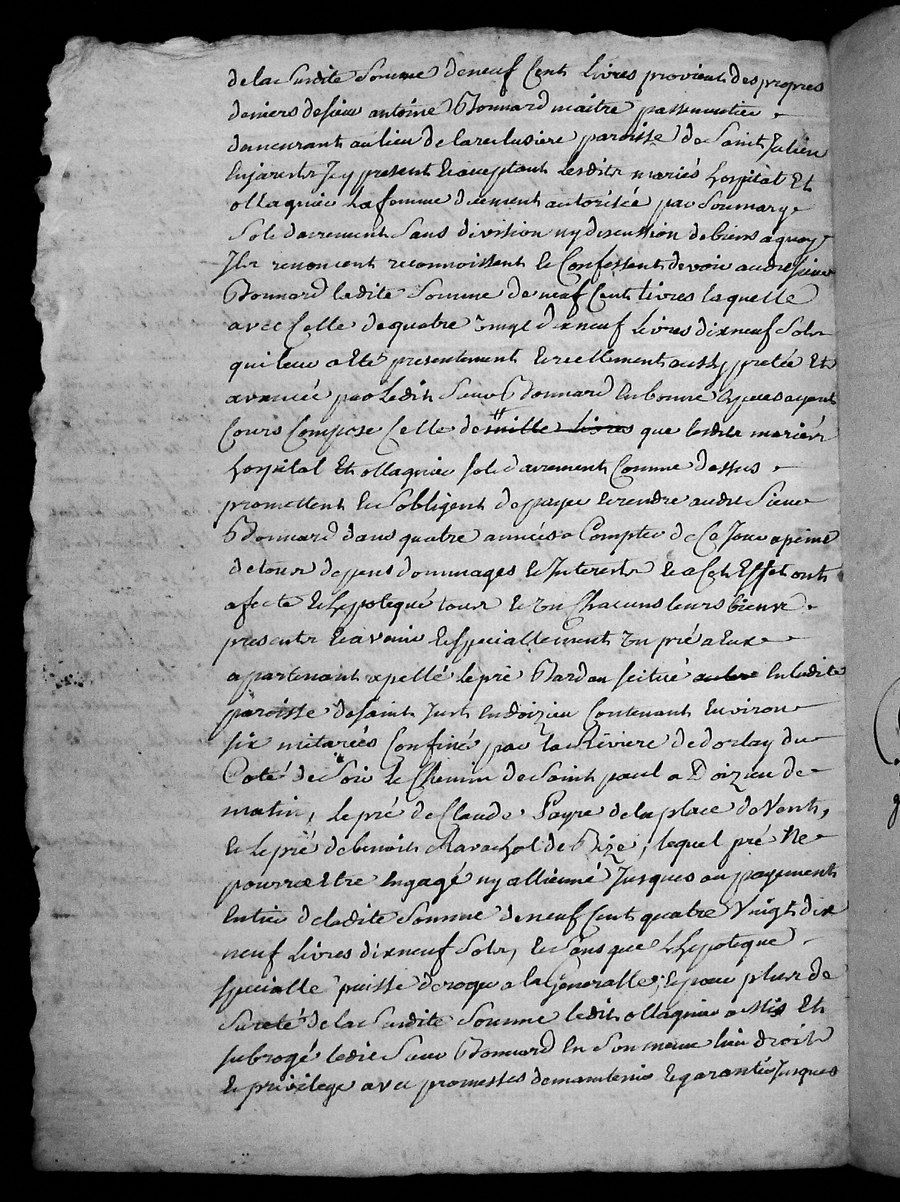 dela Susdite Somme de neuf Cent Livres provient des propres
deniers de sieur antoine Bonnard maitre passementier
demeurant au lieu de la reclusiere paroisse de Saint Julien
En jarest Jcy present Et acceptant Lesdits mariés hospital Et
ollagnier La femme duement autorisée par Son mary
Solidairement Sans division ny discussion de biens a quoy
Ils renoncent reconnoissent Et Confessent devoir audit Sieur
Bonnard ladite Somme de neuf Cent Livres laquelle
avec Celle de quatre vingt dixneuf Livres dixneuf Sols
qui leur a Eté presentement Et reellement aussy pretée Et
avancée par Ledit Sieur Bonnard En bonne Especes ayant
Cours Compose Celle de mille Livres que lesdits mariés
hospital Et ollagnier solidairement Comme dessus
promettent Et Sobligent de payer Et rendre audit Sieur
Bonnard dans quatre années a Compter de Ce Jour a peine
de tous depens dommages Et Interests Et a Cet Effet ont
afecté Et Hypotequé tous Et Un Chacuns leurs biens
presents Et avenir Et Speciallement Un pré a Eux
apartenant apellé le pré Bardou scitué En Ladite
paroisse de Saint Just En doizieu Contenant Environ
six mitarées Confiné par la Riviere de dorlay du
Coté de Soir Le Chemin de Saint paul a Doizieu de
matin, Le pré de Claude Payre de la place de Vent,
Et Le pré de benoit Ravachol de Bize, lequel pré Ne
pourra Etre Engagé ny allienné Jusques au payement
Entier de ladite Somme de neuf Cent quatre Vingt dix
neuf Livres dixneuf Sols, Et Sans que LHypoteque
Specialle puisse deroger a la Generalle, Et pour plus de
Sureté de la Susdite Somme ledit ollagnier a mis Et
subrogé ledit Sieur Bonnard En Son meme lieu droit
Et privilege avec promesses de maintenir Et garantir Jusques